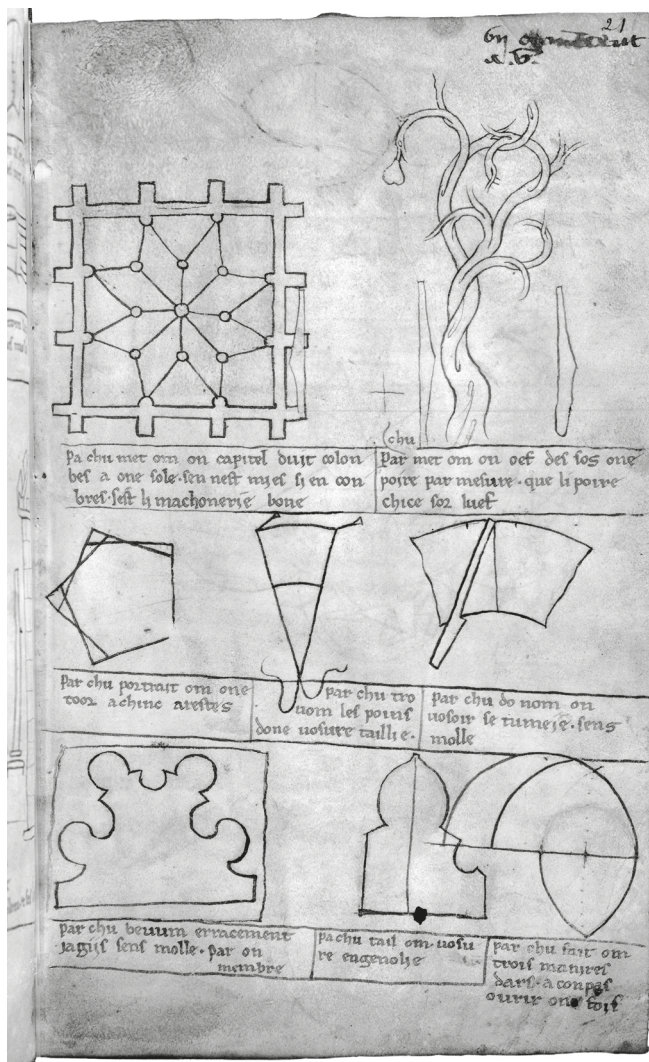 21
chu
pa chu met om on capitel duit colon
bes a one sole·sen nest mies si en con
bres·sest li machonerie bone
par met om on oef des sos one
poire par mesure·que li poire
chice sor luef
par chu portrait om one
toor a chinc arestes
par chu tro
vom les poins
done vosure taillie·
par chu do nom on
vosoir se tumeie·sens
molle
par chu bevum erracement
jagiis sens molle·par on
membre
pa chu tail om vosu
re engenolie
par chu fait om
trois manires
dars·a conpas
ovrir one fois